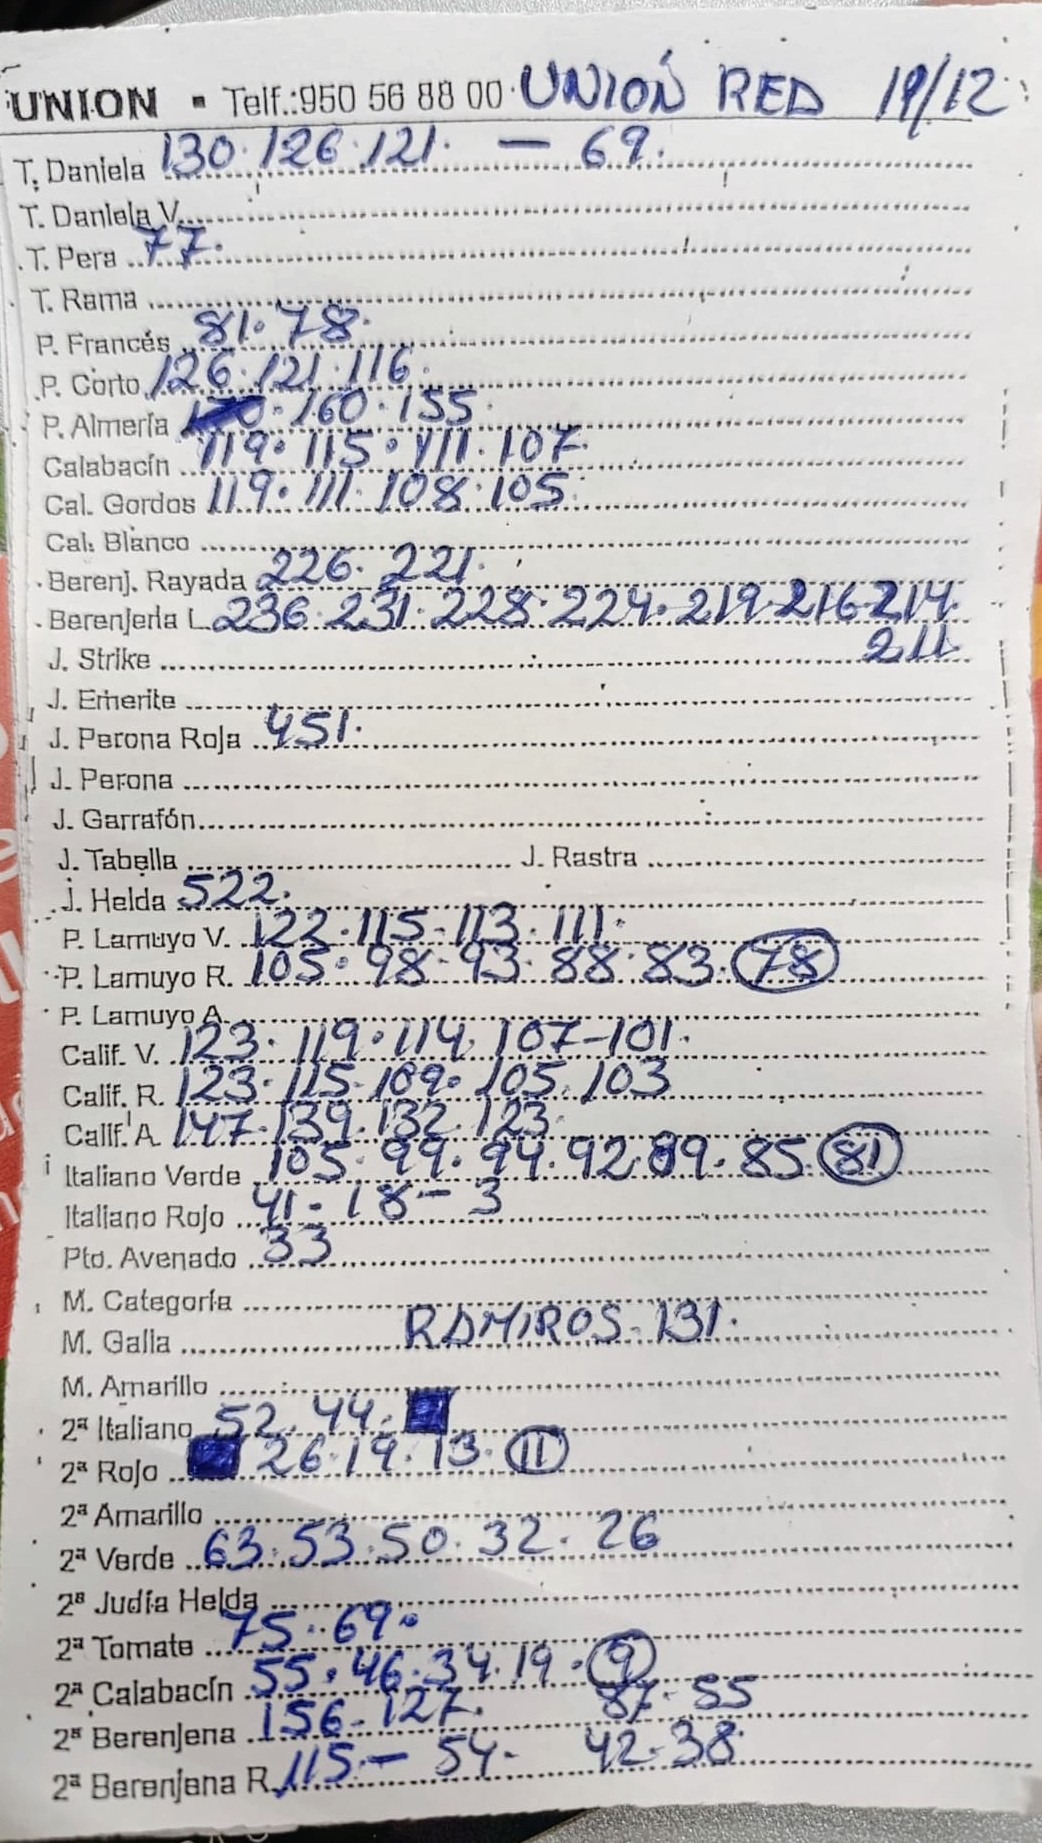 UNION - Telf.:950 56 88 00 UNIÓN RED 19/12
T. Daniela 130. 126. 121. - 69.
T. Daniela V.
T. Pera 77.
T. Rama
P. Francés 81. 78.
P. Corto 126. 121. 116.
P. Almería 160. 155
Calabacín 119. 115. 111. 107
Cal. Gordos 119. 111. 108. 105
Cal. Blanco
Berenj. Rayada 226. 221.
Berenjena L 236. 231. 228. 224. 219. 216 214.
211
J. Strike
J. Emerite
J. Perona Roja 451.
J. Perona
J. Garrafón
J. Tabella J. Rastra
J. Helda 522.
P. Lamuyo V. 122. 115 - 113. 111.
P. Lamuyo R. 105. 98 - 93. 88. 83. 78
P. Lamuyo A.
Calif. V. 123. 119. 114. 107-101.
Calif. R. 123. 115. 109. 105. 103
Calif. A 147. 139. 132. 123.
Italiano Verde 105. 99. 94. 92. 89. 85. 81
Italiano Rojo 41 - 18 - 3
Pto. Avenado 33
M. Categoría
M. Galla RAMIROS - 131.
M. Amarillo
2ª Italiano 52. 44.
2ª Rojo 26. 19. 13. 11
2ª Amarillo
2ª Verde 63. 53. 50. 32. 26
2ª Judía Helda
2ª Tomate 75. 69.
2ª Calabacín 55. 46. 34. 19. 9
2ª Berenjena 156 - 127. 87 - 85
2ª Berenjena R. 115 - 54 - 42 - 38